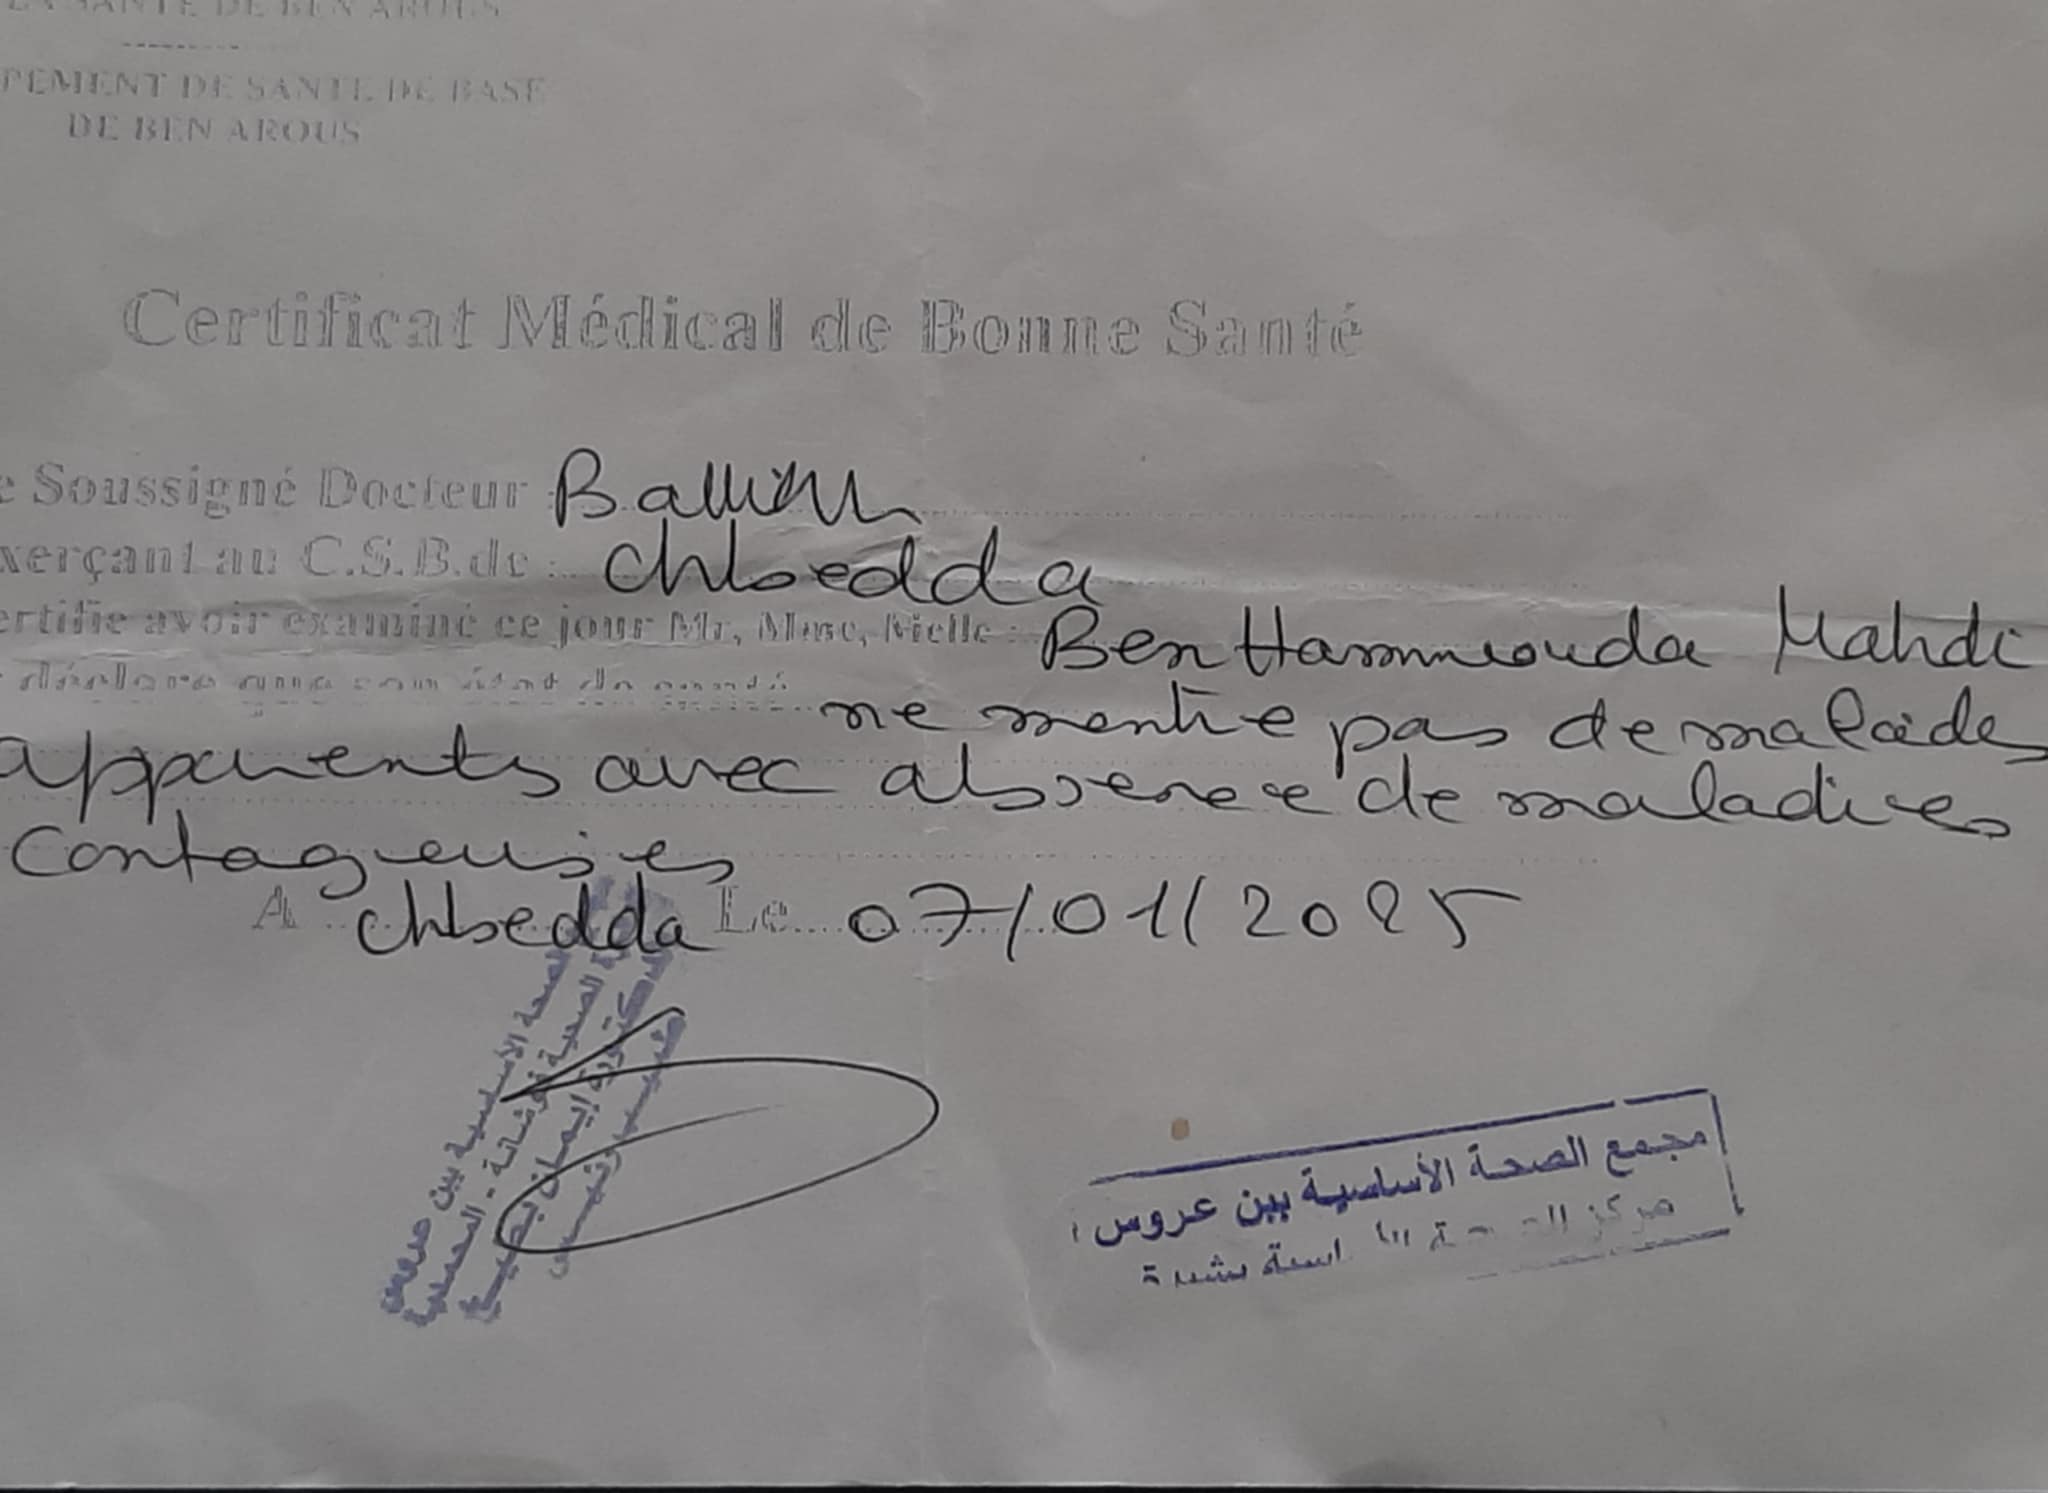 LA SANTE DE BEN AROUS
PEMENT DE SANTE DE BASE
DE BEN AROUS
Certificat Médical de Bonne Santé
e Soussigné Docteur
xerçant au C.S.B.de : Chbedda
ertifie avoir examiné ce jour Mr, Mme, Melle : Ben Hammouda Mahdi
déclare que son état de santé
ne montre pas de malades
apparents avec absence de maladies
Contagieuses
A Chbedda Le 07/01/2025
الصحة الأساسية ببن عروس
مجمع الصحة الأساسية ببن عروس
مركز